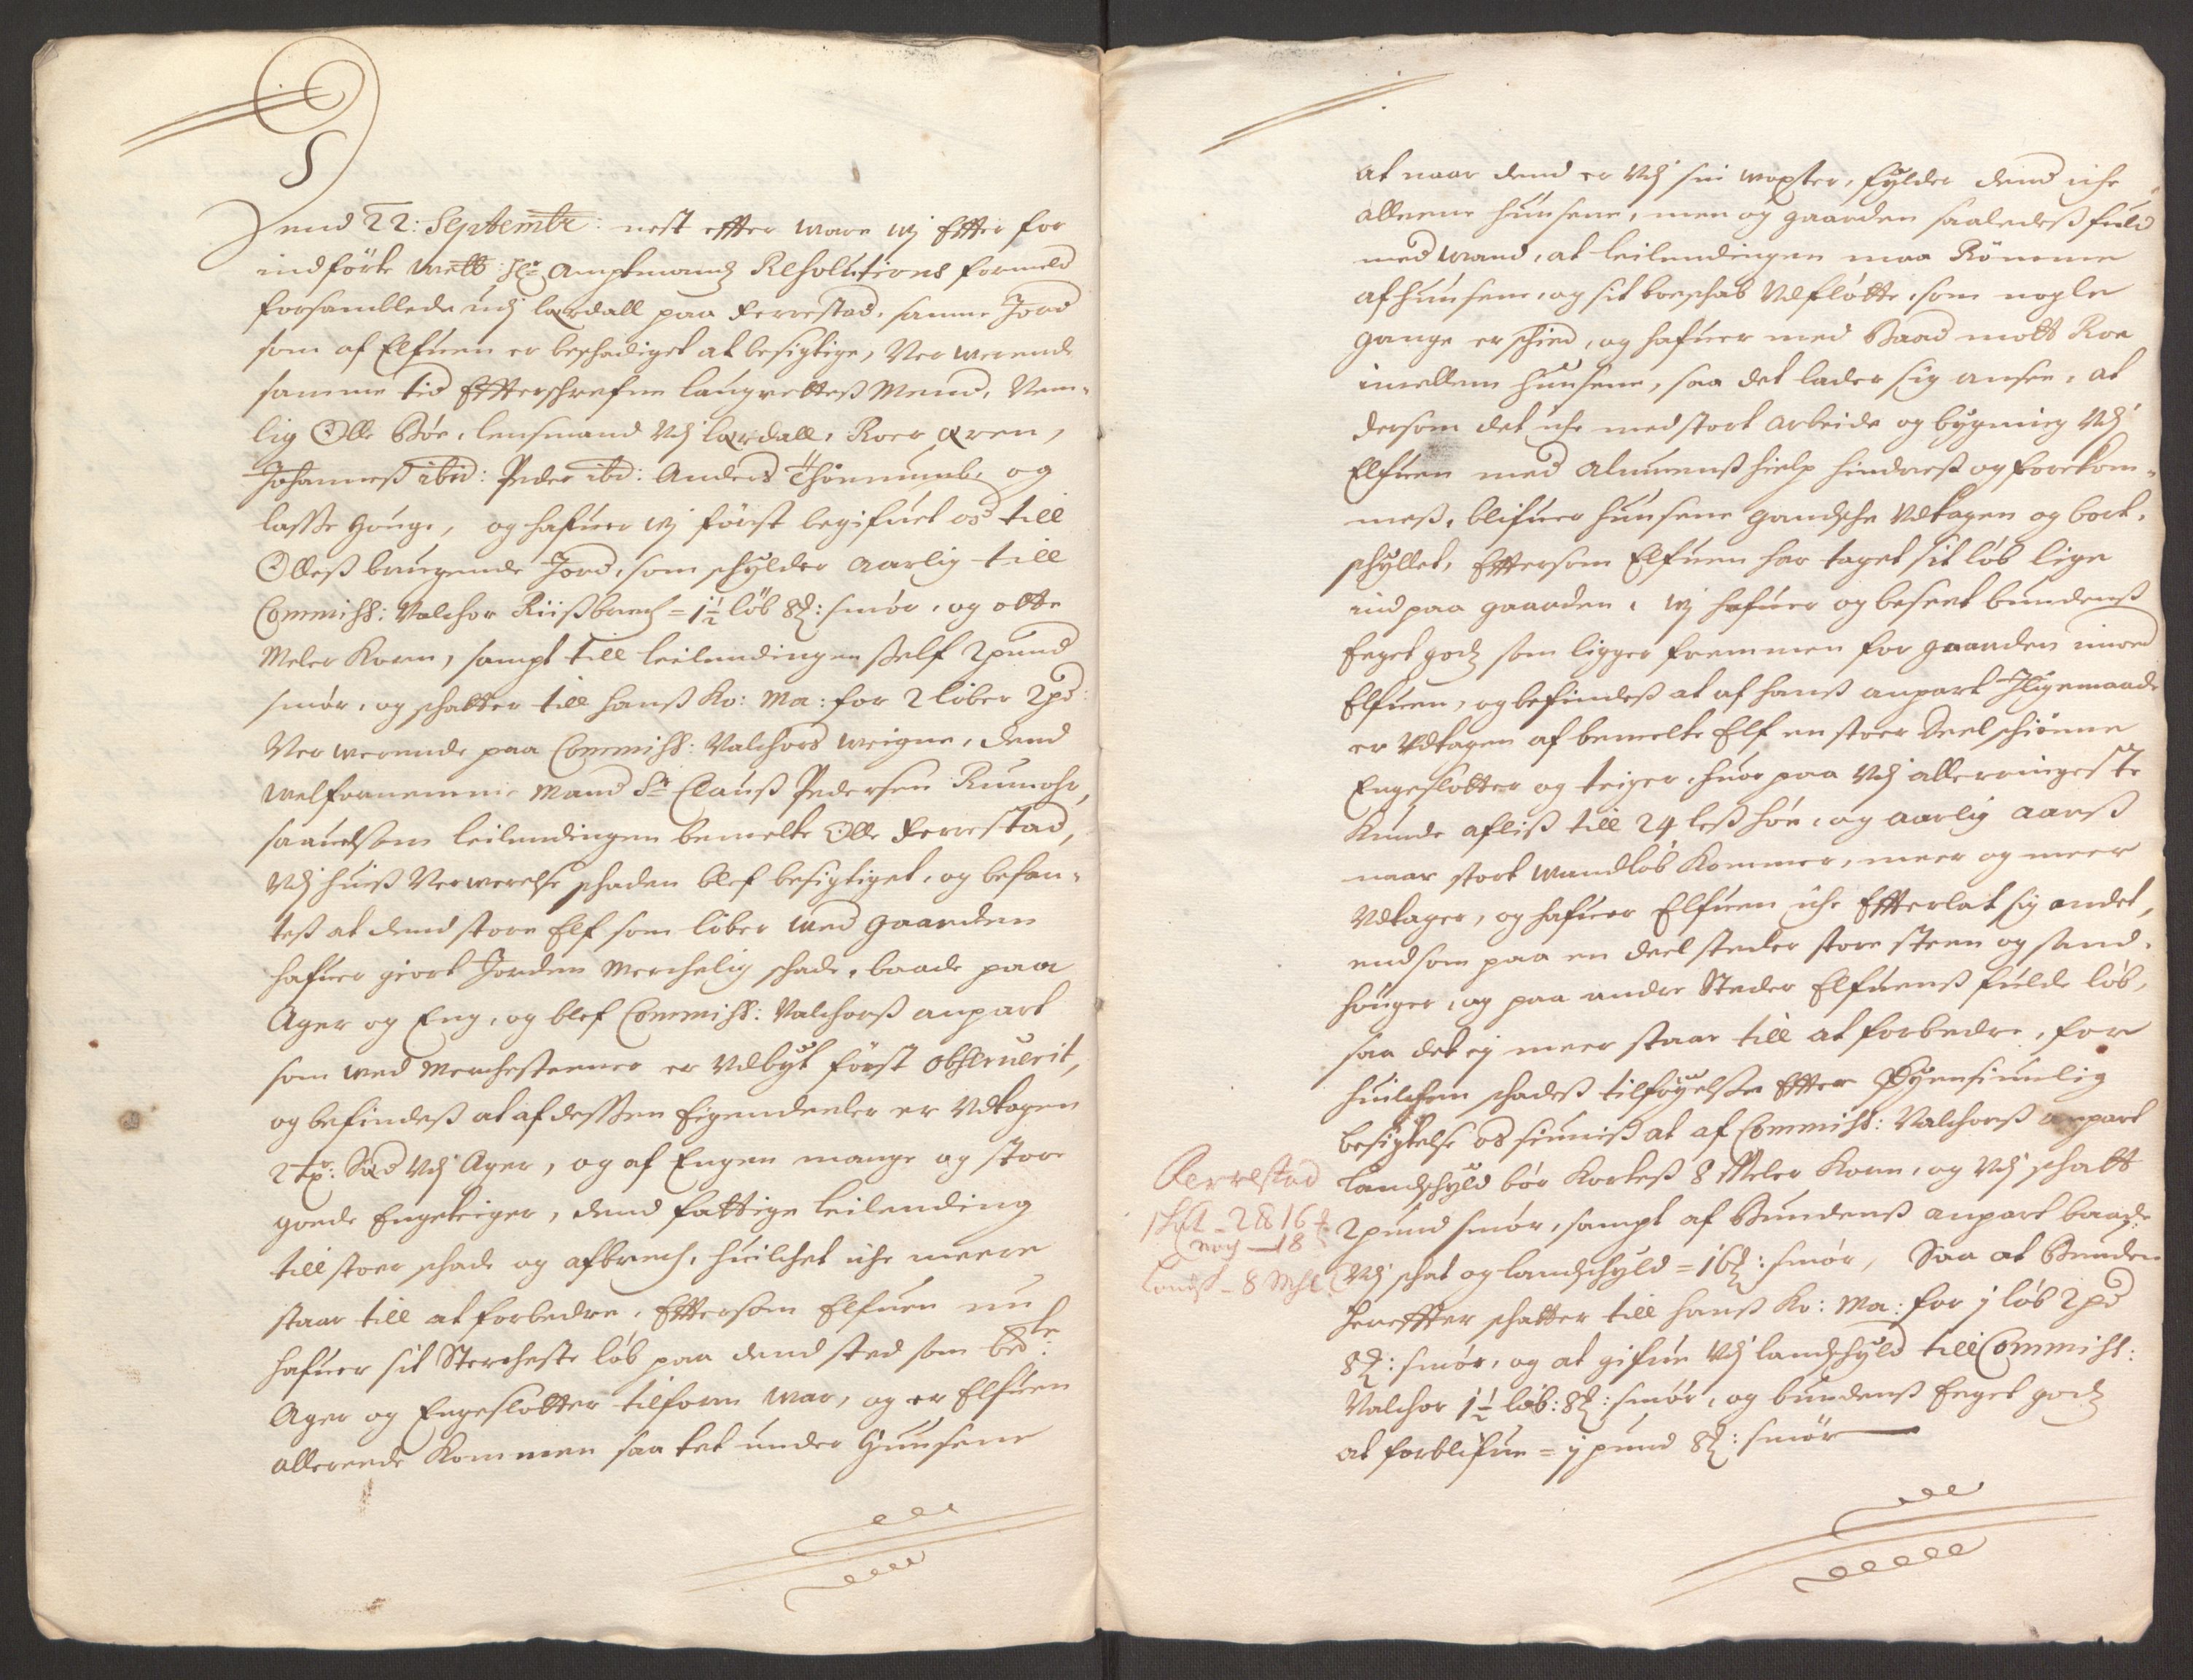 Dend 22: Septembr: nest effter ware wj Effter for
indförte welb: Hr Amptmandz Resolutions formeld
forsamblede udj Lærdall paa Ferrestad, samme Jord
som af Elfuen er beschadiget at besigtige, Ner werende
samme tid Effterschrefne laugrettes Mend, Nem-
lig Olle Böe, lensmand Udj Lærdall, Roer Æren,
Johannes ibid: Peder ibid: Anders Thönnumb, og
Lasse Houge, og hafuer wj först begifuet os till
Olles brugende Jord, som schylder aarlig till
Commiss: Valchor Riisbrech = 1½ löb 8 ℔: smör, og otte
Meler Korn, sampt till leilendingen sself 2 pund
smör, og schatter till hans Ko: Ma: for 2 löber 2 pd:
Ner werende paa Commiss: Valchors weigne, dend
welfornemme Mand Sr Claus Pedersen Rumohr,
saauelsom leilendingen bemelte Olle Ferrestad,
Udj huis Nerwerelse schaden blef besigtiget, og befan-
tes at dend store Elf som löber wed gaarden
hafuer giort Jorden Merchelig schade, baade paa
Ager og Eng, og blef Commiss: Valchors anpart
som med Merchesteener er Udbyt först obseruerit,
og befindes at af dessen Eigendeeler er Udtagen
2 tr: Sæd Udj Ager, og af Engen mange og store
goede Engeteiger, dend fattige leilending
till stoer schade og afbrech, huilchet iche meere
staar till at forbedre, Efftersom Elfuen nu
hafuer sit Stercheste löb paa dend sted som bete:
Ager og Engeslotter tilforn war, og er Elfuen
allerede Kommen saa tet under Huusene
at naar dend er Udj sin woxter, fylder dend iche
alleene huusene, men og gaarden saaledes fuld
med wand, at leilendingen maa Römme
af huusene, og sit boeschab Udflötte, som nogle
gange er schied, og hafuer med Baad mott Roe
imellem huusene, saa det lader sig ansee, at
dersom det iche med stort arbeide og bygning Udj
Elfuen med almuens hielp hindres og forekom-
mes, blifuer huusene gandsche Udtagen og bort-
schyllet, Efftersom Elfuen har taget sit löb lige
ind paa gaarden, wj hafuer og beseet bundens
Eeget godz som ligger fremmen for gaarden imod
Elfuen, og befindes at af hans anpart Jligemaade
er Udtagen af bemelte Elf en stoer deel schiönne
Engeslotter og teiger, huor paa Udj allerringeste
Kunde aflis till 24 les höe, og aarlig aars
naar stort wandlöb Kommer, meer og meer
Udtager, og hafuer Elfuen iche Effterlat sig andet,
end som paa en deel steder store steen og sand-
höuger, og paa andre Steder Elfuens fulde löb,
saa det ej meer staar till at forbedre, for
huilchen schades tilföyelse Effter Øyensiunlig
besigtelse os siunis at af Commiss: Valchors anpart
Landschyld bör Kortes 8 Meler Korn, og Udj schatt
2 pund smör, sampt af Bundens anpart baade
Udj schat og landschyld = 16 ℔: smör, Saa at Bunden
hereffter schatter till hans Ko: Ma: for j löb 2 pd
8 ℔: smör, og at gifue Udj landschyld till Commiss:
Valchor 1½ löb: 8 ℔: smör, og bundens Eeget godz
at forblifue = j pund 8 ℔: smör
Ferrestad
schl - 2 ℔ 16 ℔
noch — 18
landsk - 8 Mehl: